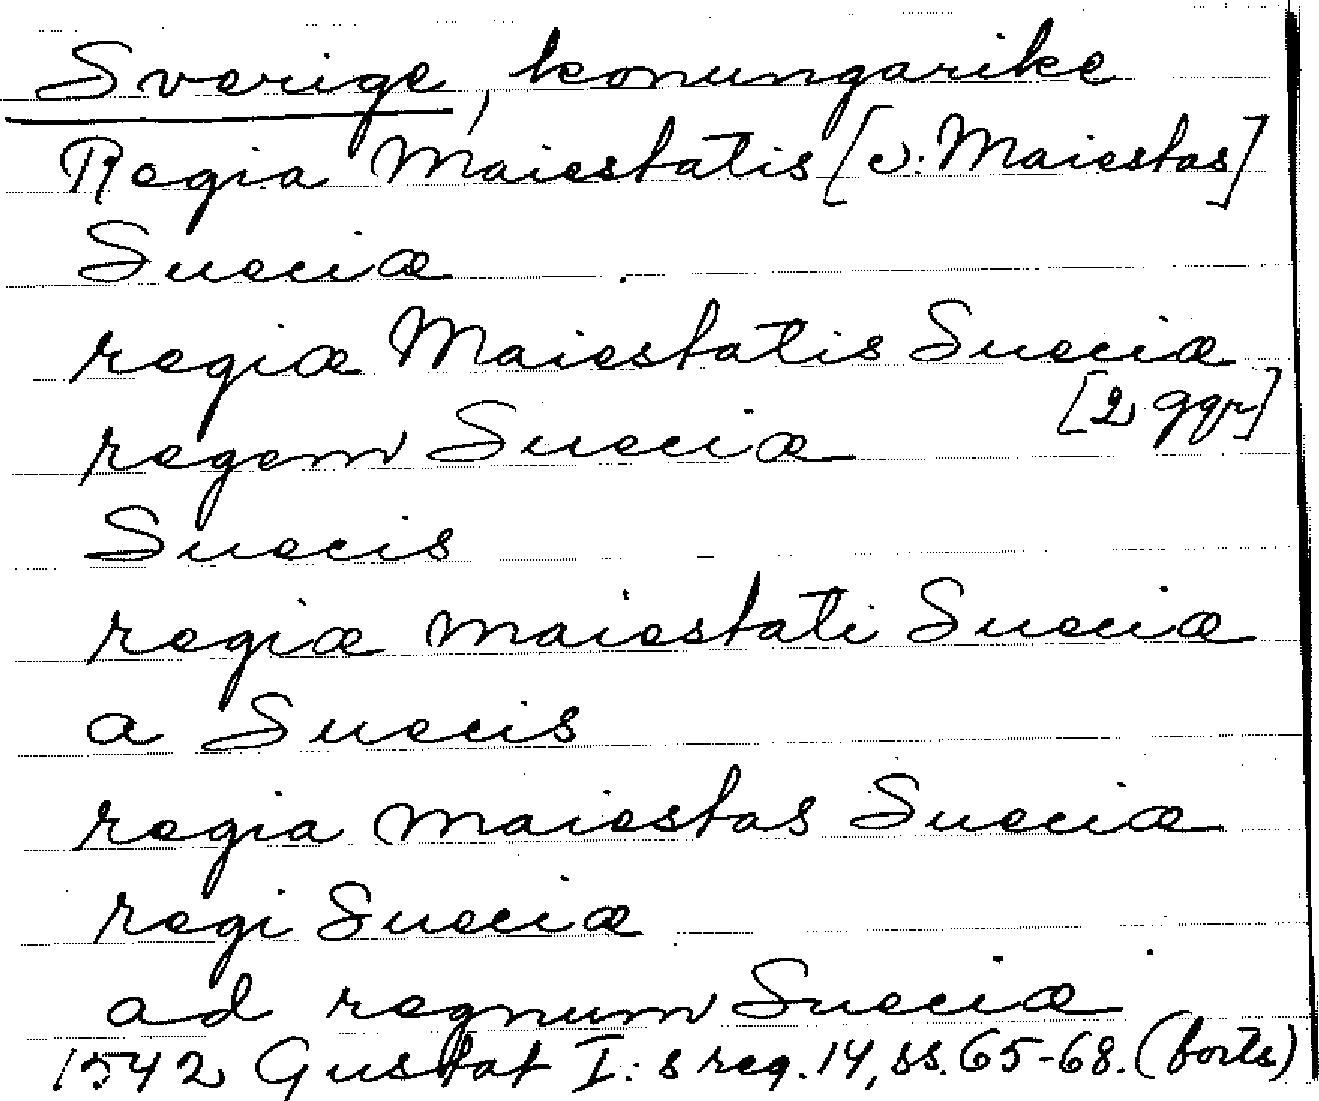 Sverige, konungarike
Regia Maiestatis [v: Maiestas]
Sueciæ
regiæ Maiestatis Sueciæ
[2 ggr]
regem Sueciæ
Suecis
regiæ maiestati Sueciæ
a Suecis
regia maiestas Sueciæ
regi Sueciæ
ad regnum Sueciæ
1542 Gustaf I:s reg. 14, ss. 65-68. (forts)